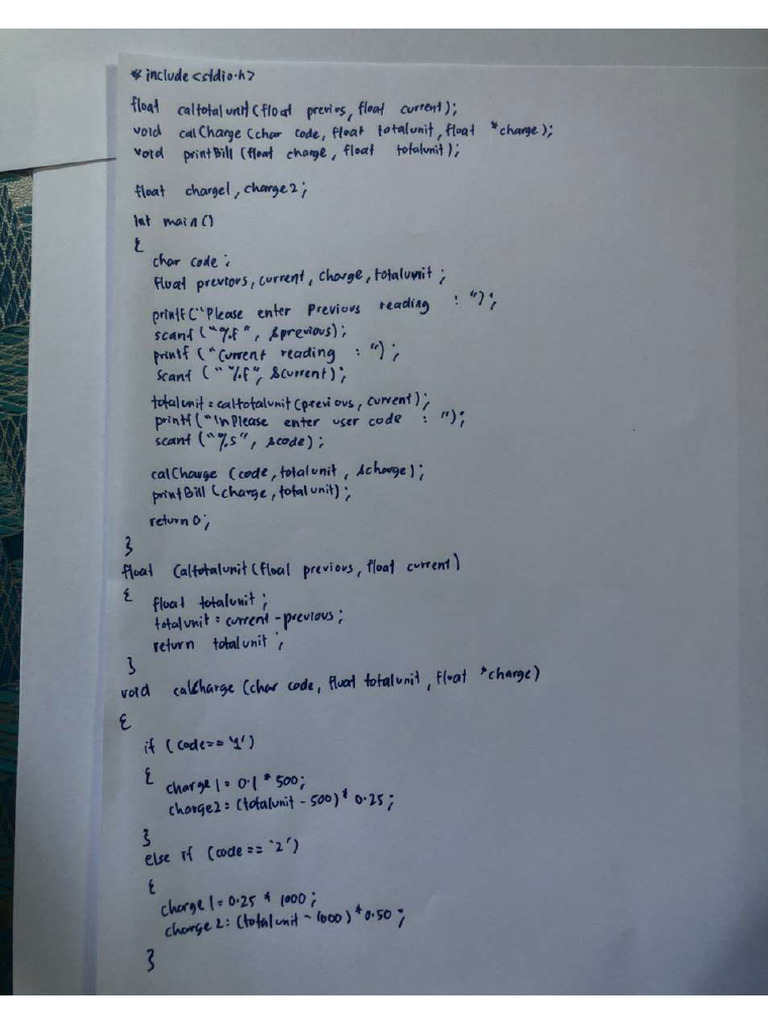 #include<stdio.h>
float caltotalunit(float previos, float current);
void calCharge (char code, float totalunit, float *charge);
void printBill (float charge, float totalunit);
float charge1, charge2;
int main()
{
char code;
float previors, current, charge, totalunit;
printf("Please enter Previous reading : ");
scanf ("%f", &previous);
printf ("Current reading : ");
scanf ("%f", &current);
totalunit = caltotalunit(previous, current);
printf("\nPlease enter user code : ");
scanf ("%s", &code);
calCharge (code, totalunit, &charge);
printBill (charge, totalunit);
return 0;
}
float Caltotalunit (float previous, float current)
{
float totalunit;
totalunit = current - previous;
return totalunit;
}
void calCharge (char code, float totalunit, float *charge)
{
if (code == '1')
{
charge1 = 0.1 * 500;
charge2 = (totalunit - 500) * 0.25;
}
else if (code == '2')
{
charge1 = 0.25 * 1000;
charge2 = (totalunit - 1000) * 0.50;
}